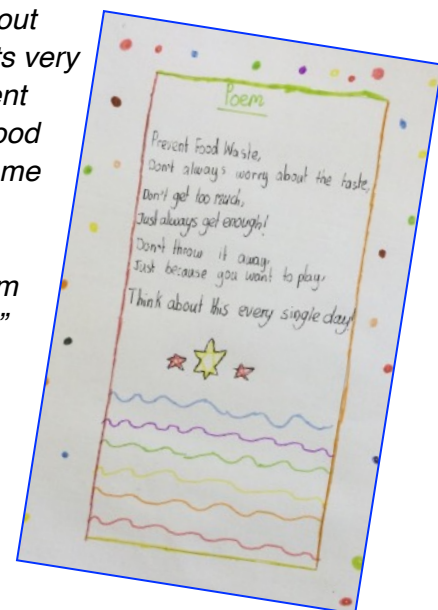 out
ts very
ent
ood
me
m
"
Poem
Prevent Food Waste,
Don't always worry about the taste,
Don't get too much,
Just always get enough!
Don't throw it away,
Just because you want to play,
Think about this every single day!